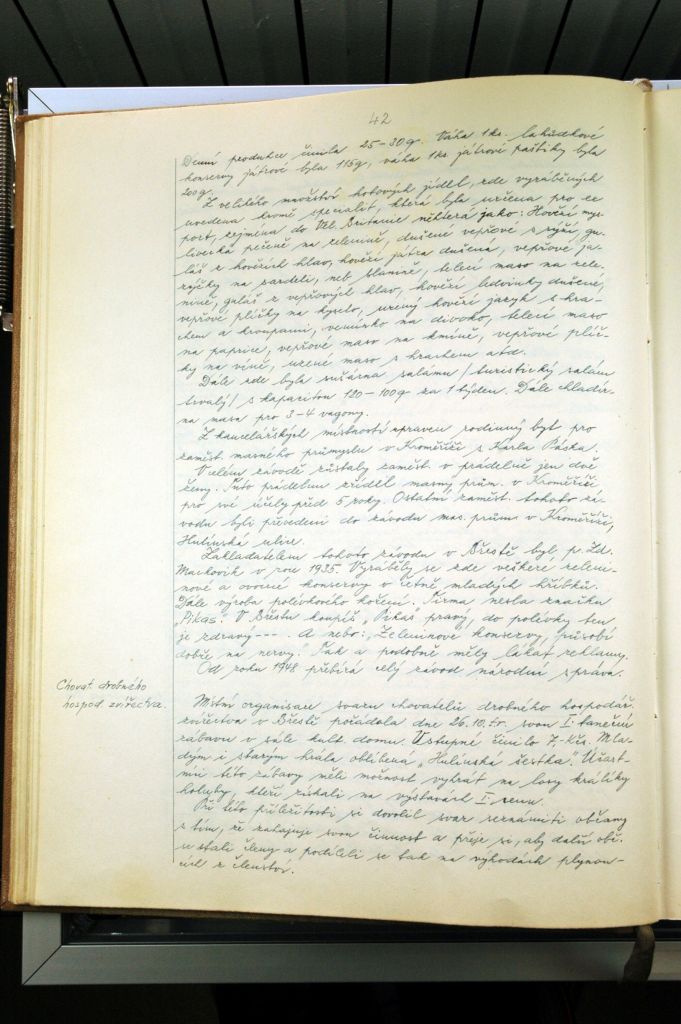 42
Denní produkce činila 25-30q. Váha 1 ks. lahůdkové
konservy játrové byla 115g, váha 1ks játrové paštiky byla
200g.
Z velikého množství hotových jídel, zde vyráběných
uvedena kromě specialit, která byla určena pro ex
port, zejména do Vel. Britanie některá jako: Hovězí mys-
livecká pečeně na zelenině, dušené vepřové s rýží, gu-
láš z hovězích hlav, hovězí játra dušená, vepřové ja-
zýčky na sardeli, neb slanině, telecí maso na zele-
nině, guláš z vepřových hlav, hovězí ledvinky dušené,
vepřové plíčky na kyselo, uzený hovězí jazyk s hra-
chem a kroupami, vemínko na divoko, telecí maso
na paprice, vepřové maso na kmíně, vepřové plíč-
ky na víně, uzené maso s hrachem atd.
Dále zde byla sušárna salámu /turistický salám
trvalý/ s kapacitou 120-100q za 1 týden. Dále chladír.
na masa pro 3-4 vagony.
Z kancelářských místností upraven rodinný byt pro
zaměst. masného průmyslu v Kroměříži s. Karla Páska.
V celém závodě zůstaly zaměst. v prádelně jen dvě
ženy. Tuto prádelnu zřídil masný prům. v Kroměříži
pro své účely před 5 roky. Ostatní zaměst. tohoto zá-
vodu byli převedeni do závodu mas. prům. v Kroměříži,
Hulínská ulice.
Zakladatelem tohoto závodu v Břestě byl p. Zd.
Mackovik v roce 1935. Vyráběly se zde veškeré zeleni-
nové a ovocné konservy v četně mladých hříbků.
Dále výroba polévkového koření. Firma nesla značku
„Pikas". V Břestu koupíš „Pikas pravý, do polévky ten
je zdravý---. A nebo: „Zeleninové konservy, působí
dobře na nervy! Tak a podobně měly lákat reklamy.
Od roku 1948 přebírá celý závod národní správa.
Chovat. drobného
hospod. zvířectva.
Místní organisace svazu chovatelů drobného hospodář.
zvířectva v Břestě pořádala dne 26.10. t.r svou I. taneční
zábavu v sále kult. domu. Vstupné činilo 7.-Kčs. Mla-
dým i starým hrála oblíbená „Hulínská šestka". Účast-
níci této zábavy měli možnost vyhrát na losy králíky
holuby, kteří získali na výstavách I. cenu.
Při této příležitosti si dovolil svaz seznámiti občany
s tím, že zahajuje svou činnost a přeje si, aby další obč.
se stali členy a podíleli se tak na výhodách plynou-
cích z členství.